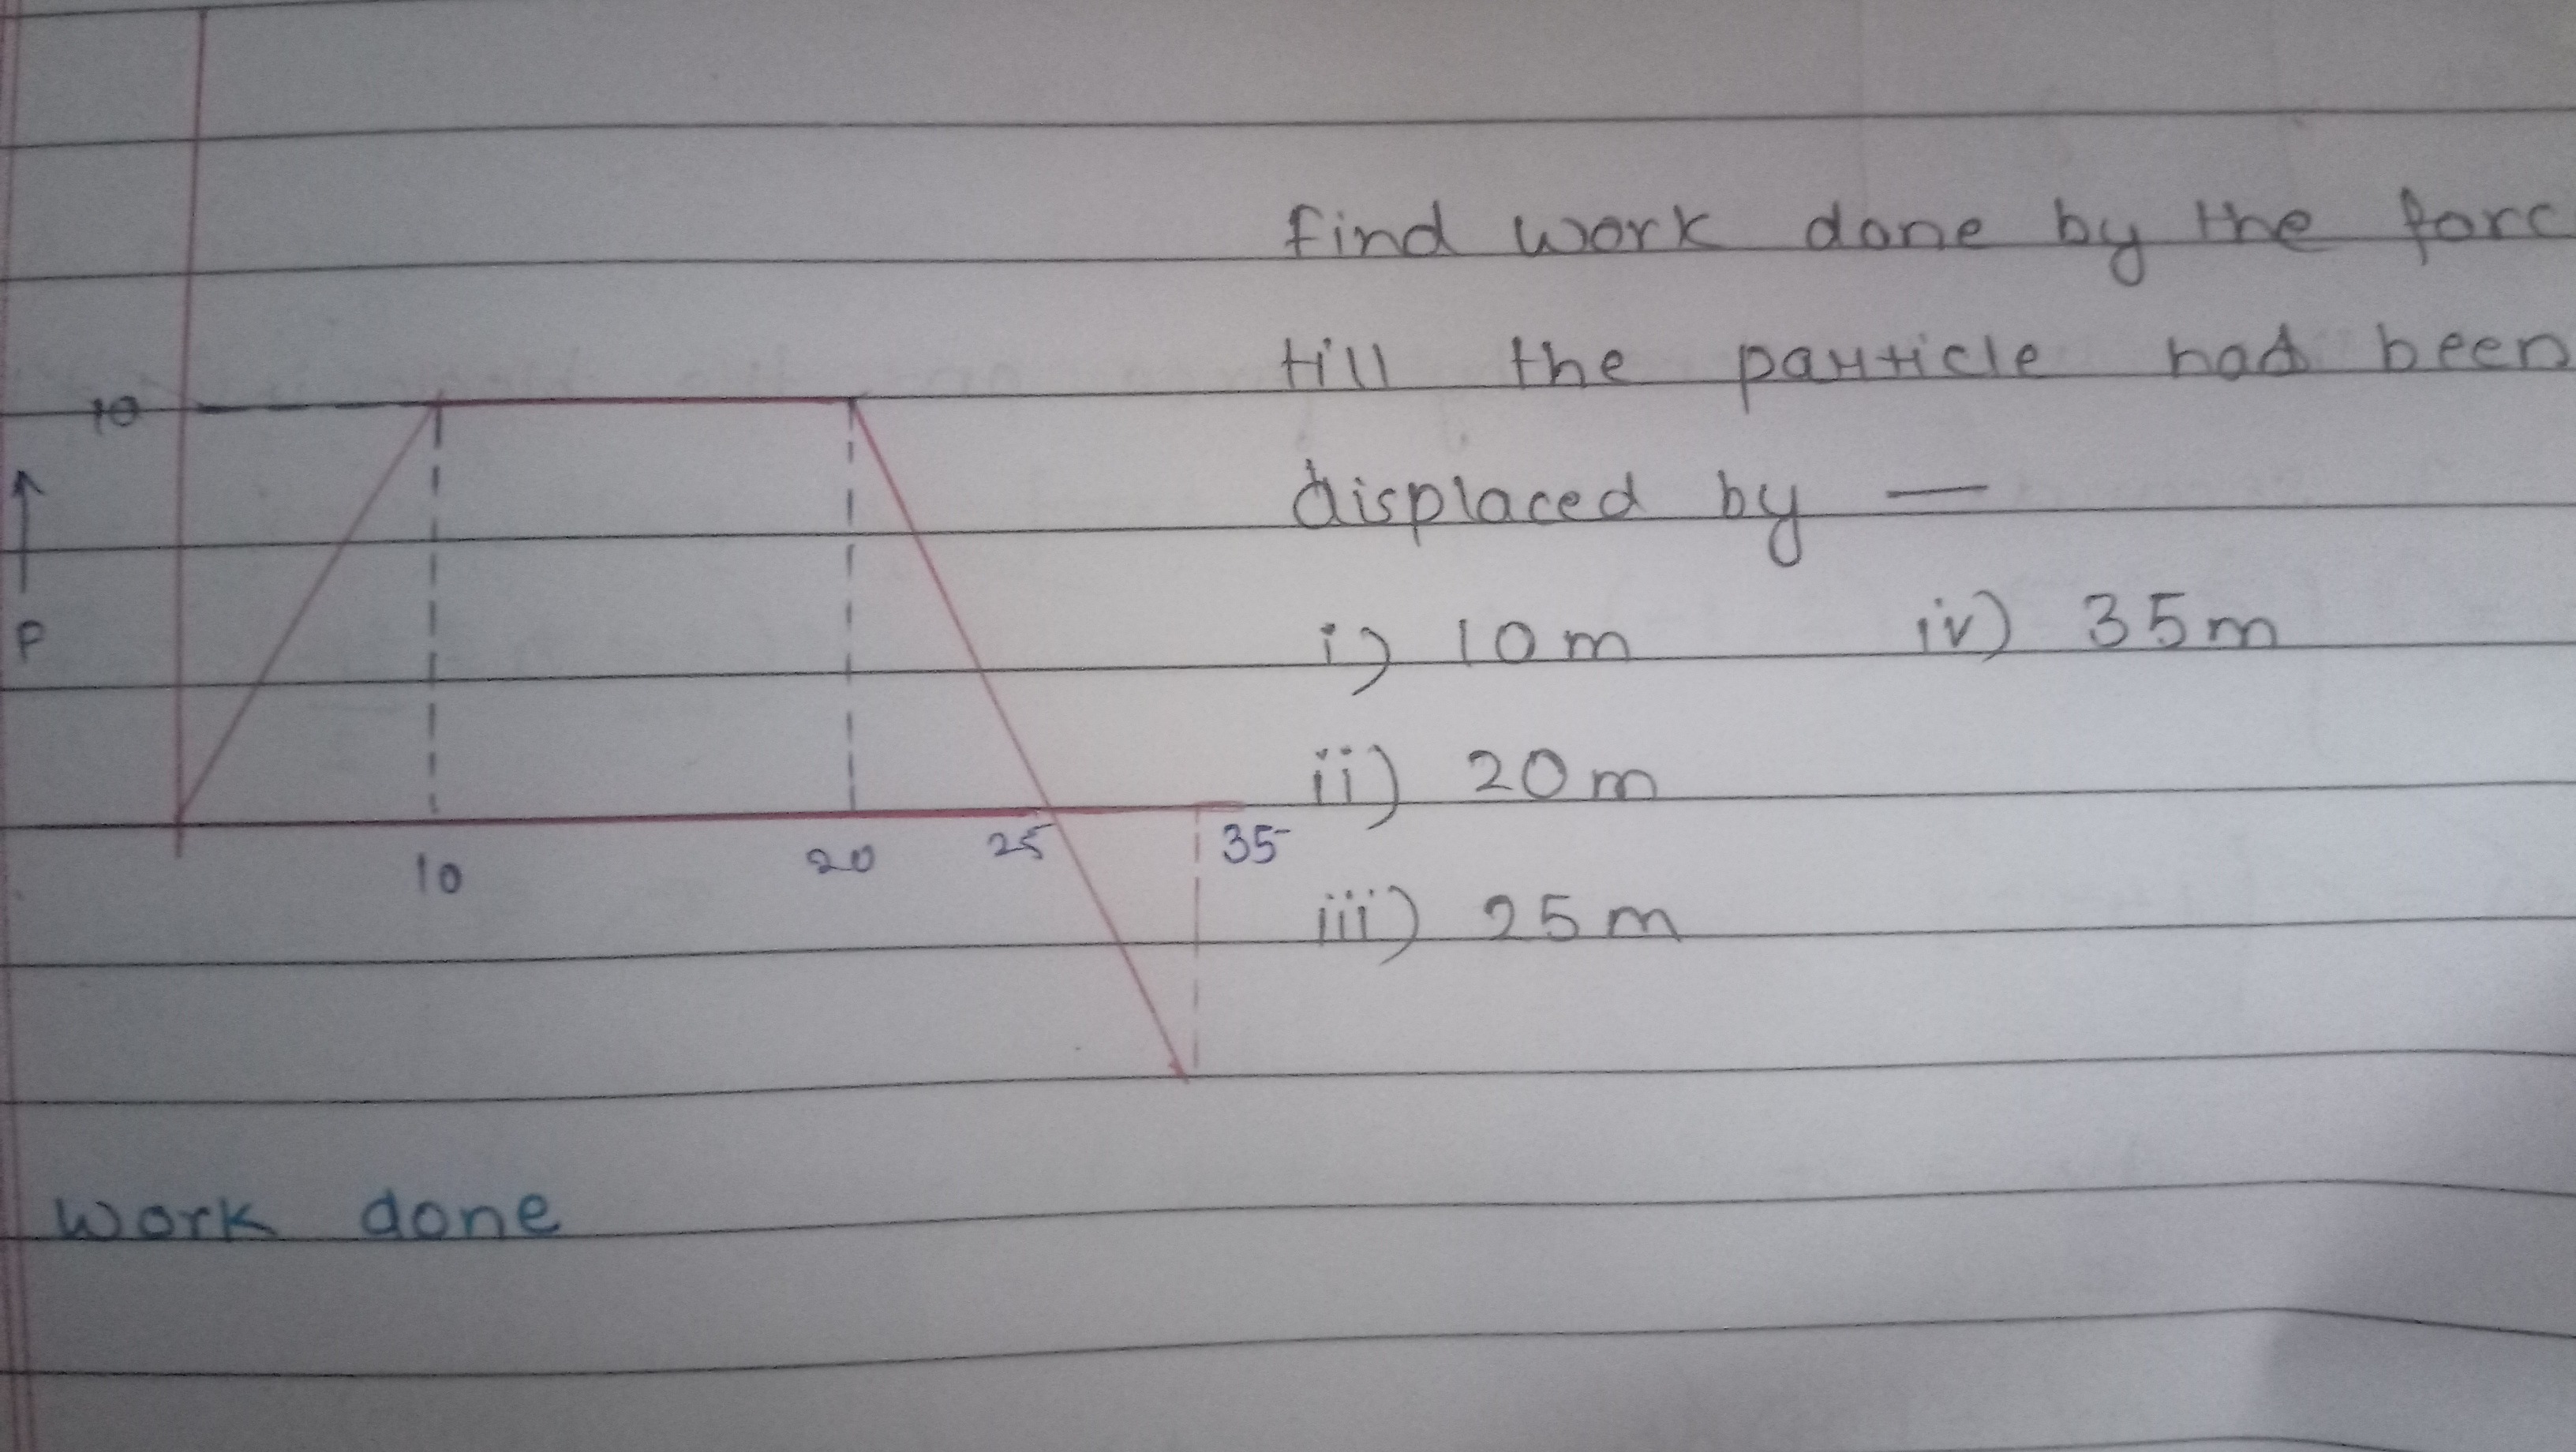 find work done by the forc
till the particle had been
10
displaced by —
↑
P
i) 10m iv) 35m
ii) 20m
10 20 25 35
iii) 25m
work done